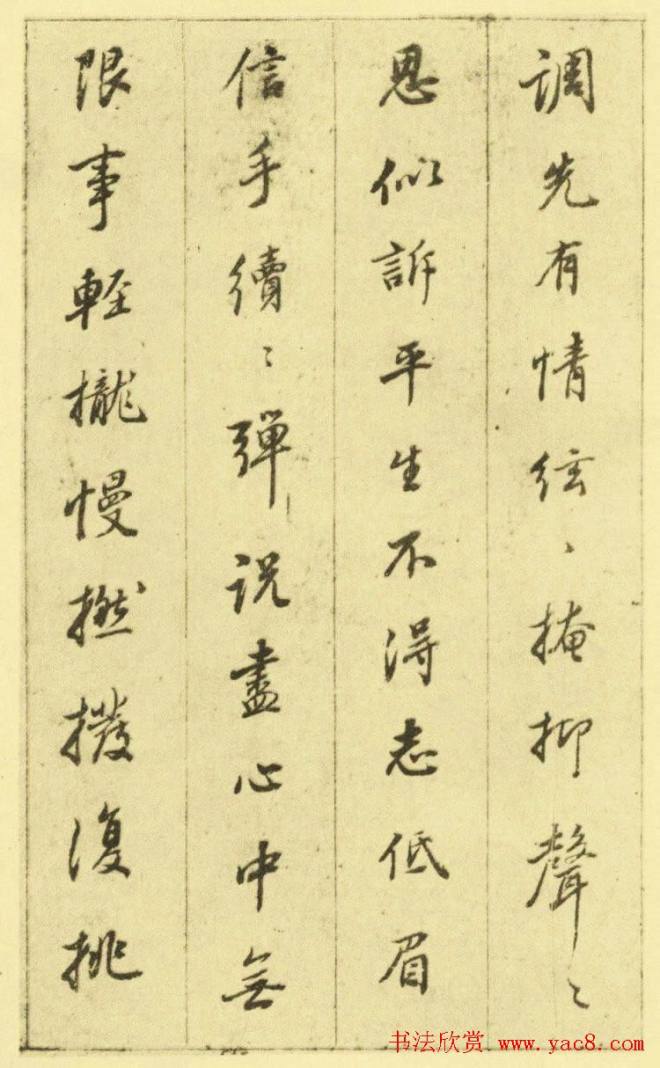 調先有情絃〻掩抑聲〻
思似訴平生不得志低眉
信手續〻彈説盡心中無
限事輕攏慢撚撥復挑
书法欣赏 www.yac8.com